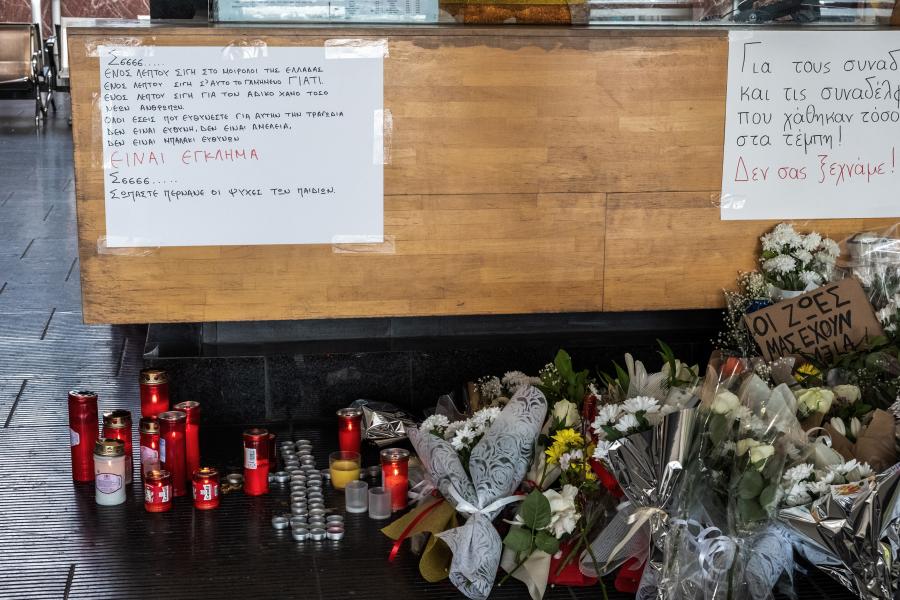 Σςςςς.....
ΕΝΟΣ ΛΕΠΤΟΥ ΣΙΓΗ ΣΤΟ ΜΟΙΡΟΛΟΙ ΤΗΣ ΕΛΛΑΔΑΣ
ΕΝΟΣ ΛΕΠΤΟΥ ΣΙΓΗ Σ'ΑΥΤΟ ΤΟ ΓΑΜΗΜΕΝΟ ΓΙΑΤΙ.
ΕΝΟΣ ΛΕΠΤΟΥ ΣΙΓΗ ΓΙΑ ΤΟΝ ΑΔΙΚΟ ΧΑΜΟ ΤΟΣΟ
ΝΕΩΝ ΑΝΘΡΩΠΩΝ.
ΟΛΟΙ ΕΣΕΙΣ ΠΟΥ ΕΥΘΥΝΕΣΤΕ ΓΙΑ ΑΥΤΗΝ ΤΗΝ ΤΡΑΓΩΔΙΑ
ΔΕΝ ΕΙΝΑΙ ΕΥΘΥΝΗ, ΔΕΝ ΕΙΝΑΙ ΑΜΕΛΕΙΑ,
ΔΕΝ ΕΙΝΑΙ ΜΠΑΛΑΚΙ ΕΥΘΥΝΩΝ
ΕΙΝΑΙ ΕΓΚΛΗΜΑ
Σςςςς.....
ΣΩΠΑΣΤΕ ΠΕΡΝΑΝΕ ΟΙ ΨΥΧΕΣ ΤΩΝ ΠΑΙΔΙΩΝ.
Για τους συναδ
και τις συναδέλφ
που χάθηκαν τόσο
στα τέμπη!
Δεν σας ξεχνάμε!
ΟΙ ΖΩΕΣ
ΜΑΣ ΕΧΟΥΝ